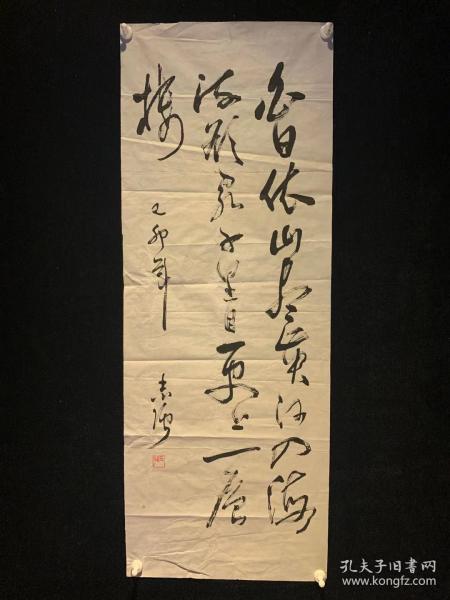 白日依山尽黄河入海
流欲穷千里目更上一层
楼
己卯年
志强
孔夫子旧书网
www.kongfz.com